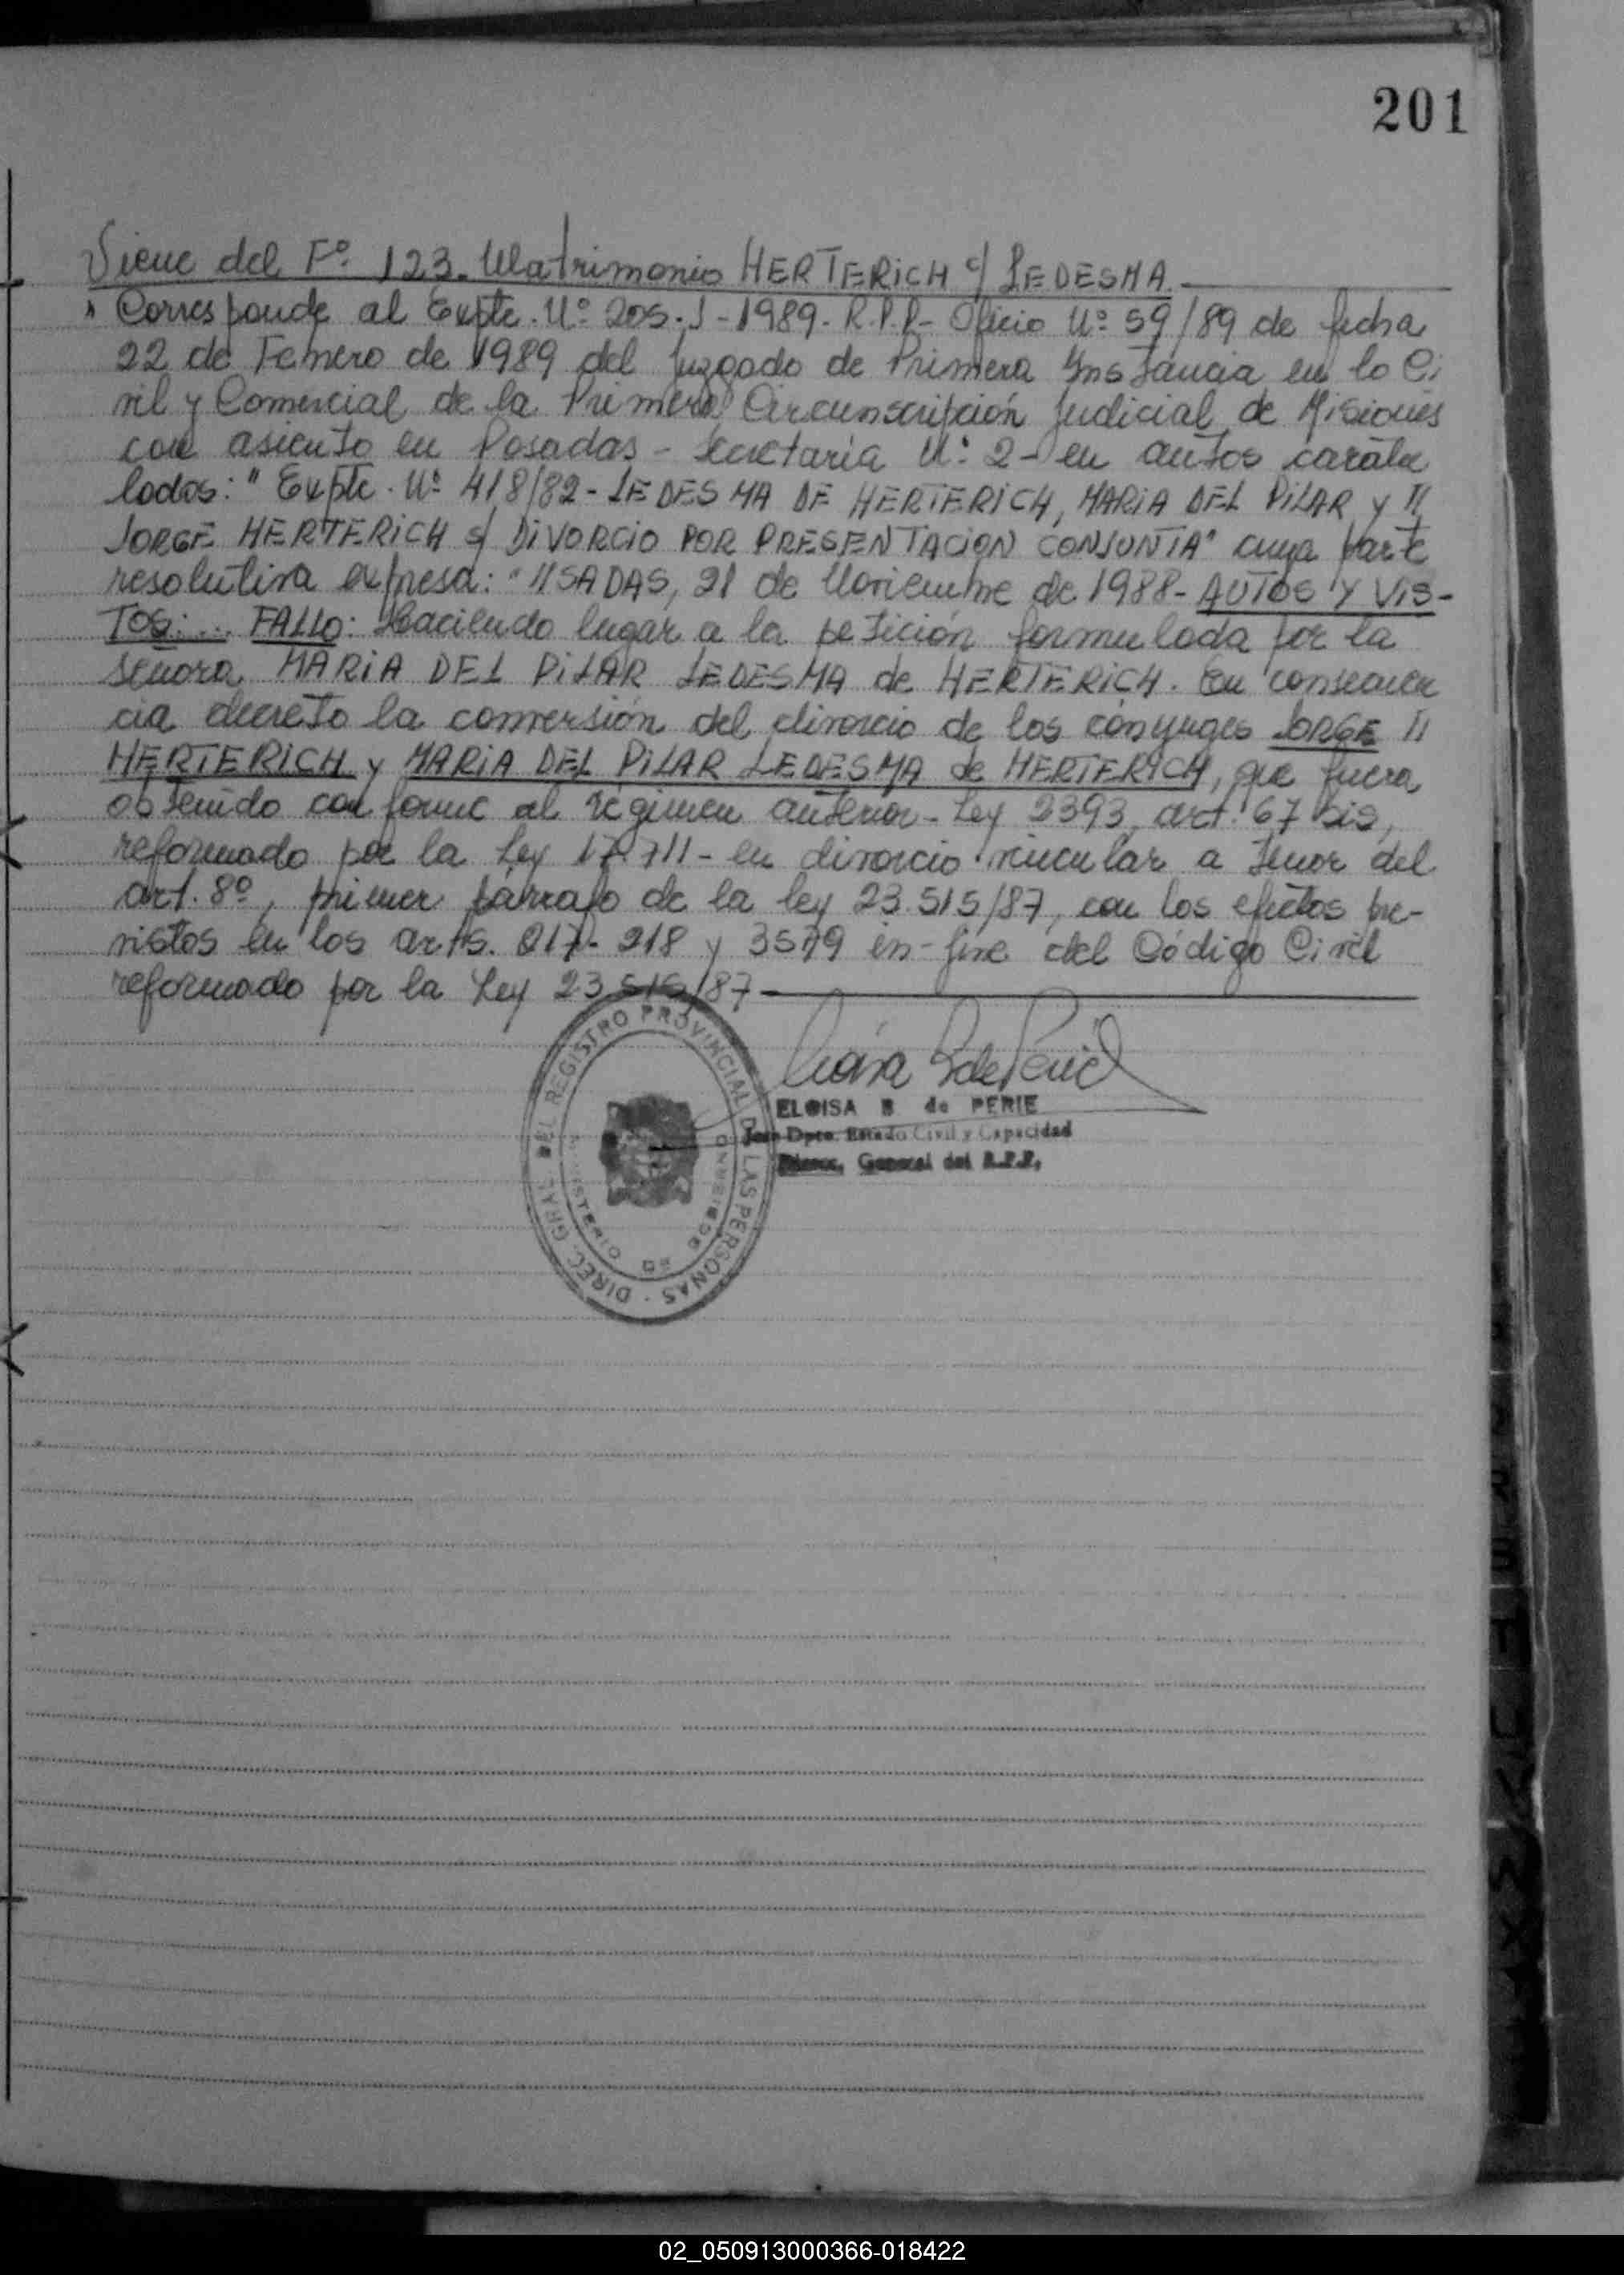 201
Viene del Fº 123. Matrimonio HERTERICH c/ LEDESMA.
" Corresponde al Expte. Nº 205.J-1989-R.P.P- Oficio Nº 59/89 de fecha
22 de Febrero de 1989 del Juzgado de Primera Instancia en lo Ci
vil y Comercial de la Primera Circunscripción Judicial de Misiones
con asiento en Posadas - Secretaría Nº 2 - en autos caratu
lados: " Expte. Nº 418/82 - LEDESMA DE HERTERICH, MARIA DEL PILAR y //
JORGE HERTERICH s/ DIVORCIO POR PRESENTACION CONJUNTA" cuya parte
resolutiva expresa: "//SADAS, 21 de Noviembre de 1988- AUTOS Y VIS-
TOS:... FALLO: Haciendo lugar a la petición formulada por la
señora MARIA DEL PILAR LEDESMA de HERTERICH. En consecuen
cia decreto la conversión del divorcio de los cónyuges JORGE //
HERTERICH y MARIA DEL PILAR LEDESMA de HERTERICH, que fuera
obtenido conforme al régimen anterior - Ley 2393, art. 67 bis,
reformado por la Ley 17.711 - en divorcio vincular a tenor del
art. 8º, primer párrafo de la ley 23.515/87, con los efectos pre-
vistos en los arts. 217- 218 y 3579 in-fine del Código Civil
reformado por la Ley 23.515/87
DIREC. GRAL. DEL REGISTRO PROVINCIAL DE LAS PERSONAS
MINISTERIO DE GOBIERNO
ELOISA B de PERIE
Jefe Dpto. Estado Civil y Capacidad
General del R.P.P.
02_050913000366-018422